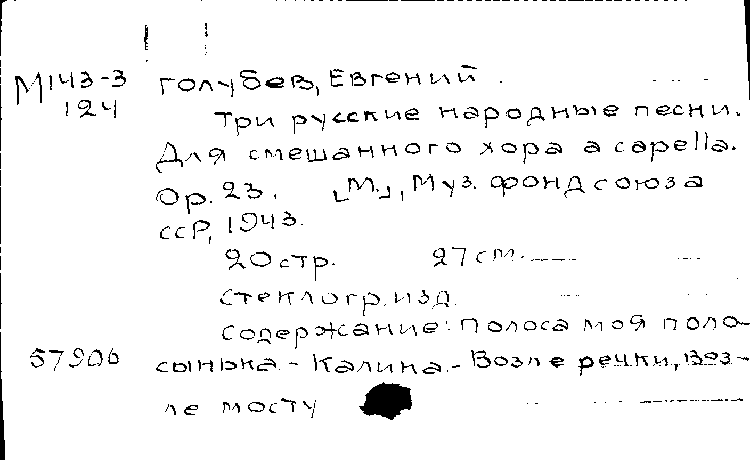 М143-3 Голубев, Евгений.
124 Три русские народные песни.
Для смешанного хора a capella.
Op. 23. [М.], Муз. фонд союза
ССР, 1943.
20 стр. 27 см.
Стеклогр. изд.
Содержание: Полоса моя поло-
57906 сынька. - Калина. - Возле речки, воз-
ле мосту